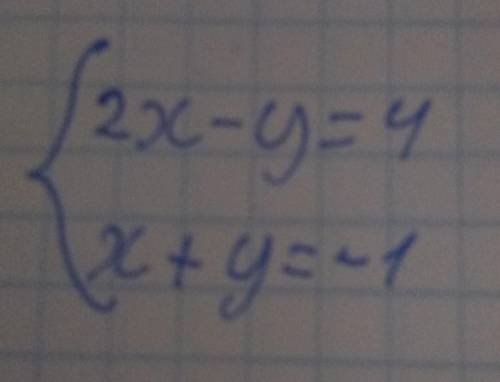 2x-y=4
x+y=-1